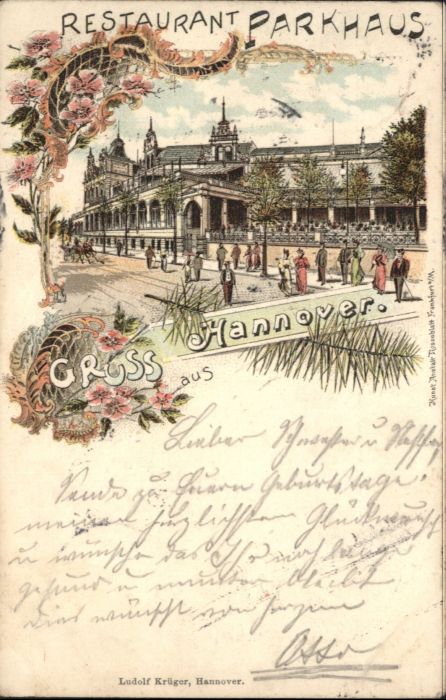 RESTAURANT PARKHAUS
Hannover.
GRUSS aus
Kunst Anstalt Rosenblatt Frankfurt a/M.
Lieber Schwester u
Sende zu Euern Geburtstage
meinen herzlichsten Glückwunsch
u wünsche das Ihr noch lange
gesund u munter bleibt
dies wünscht von Herzen
Otto
Ludolf Krüger, Hannover.